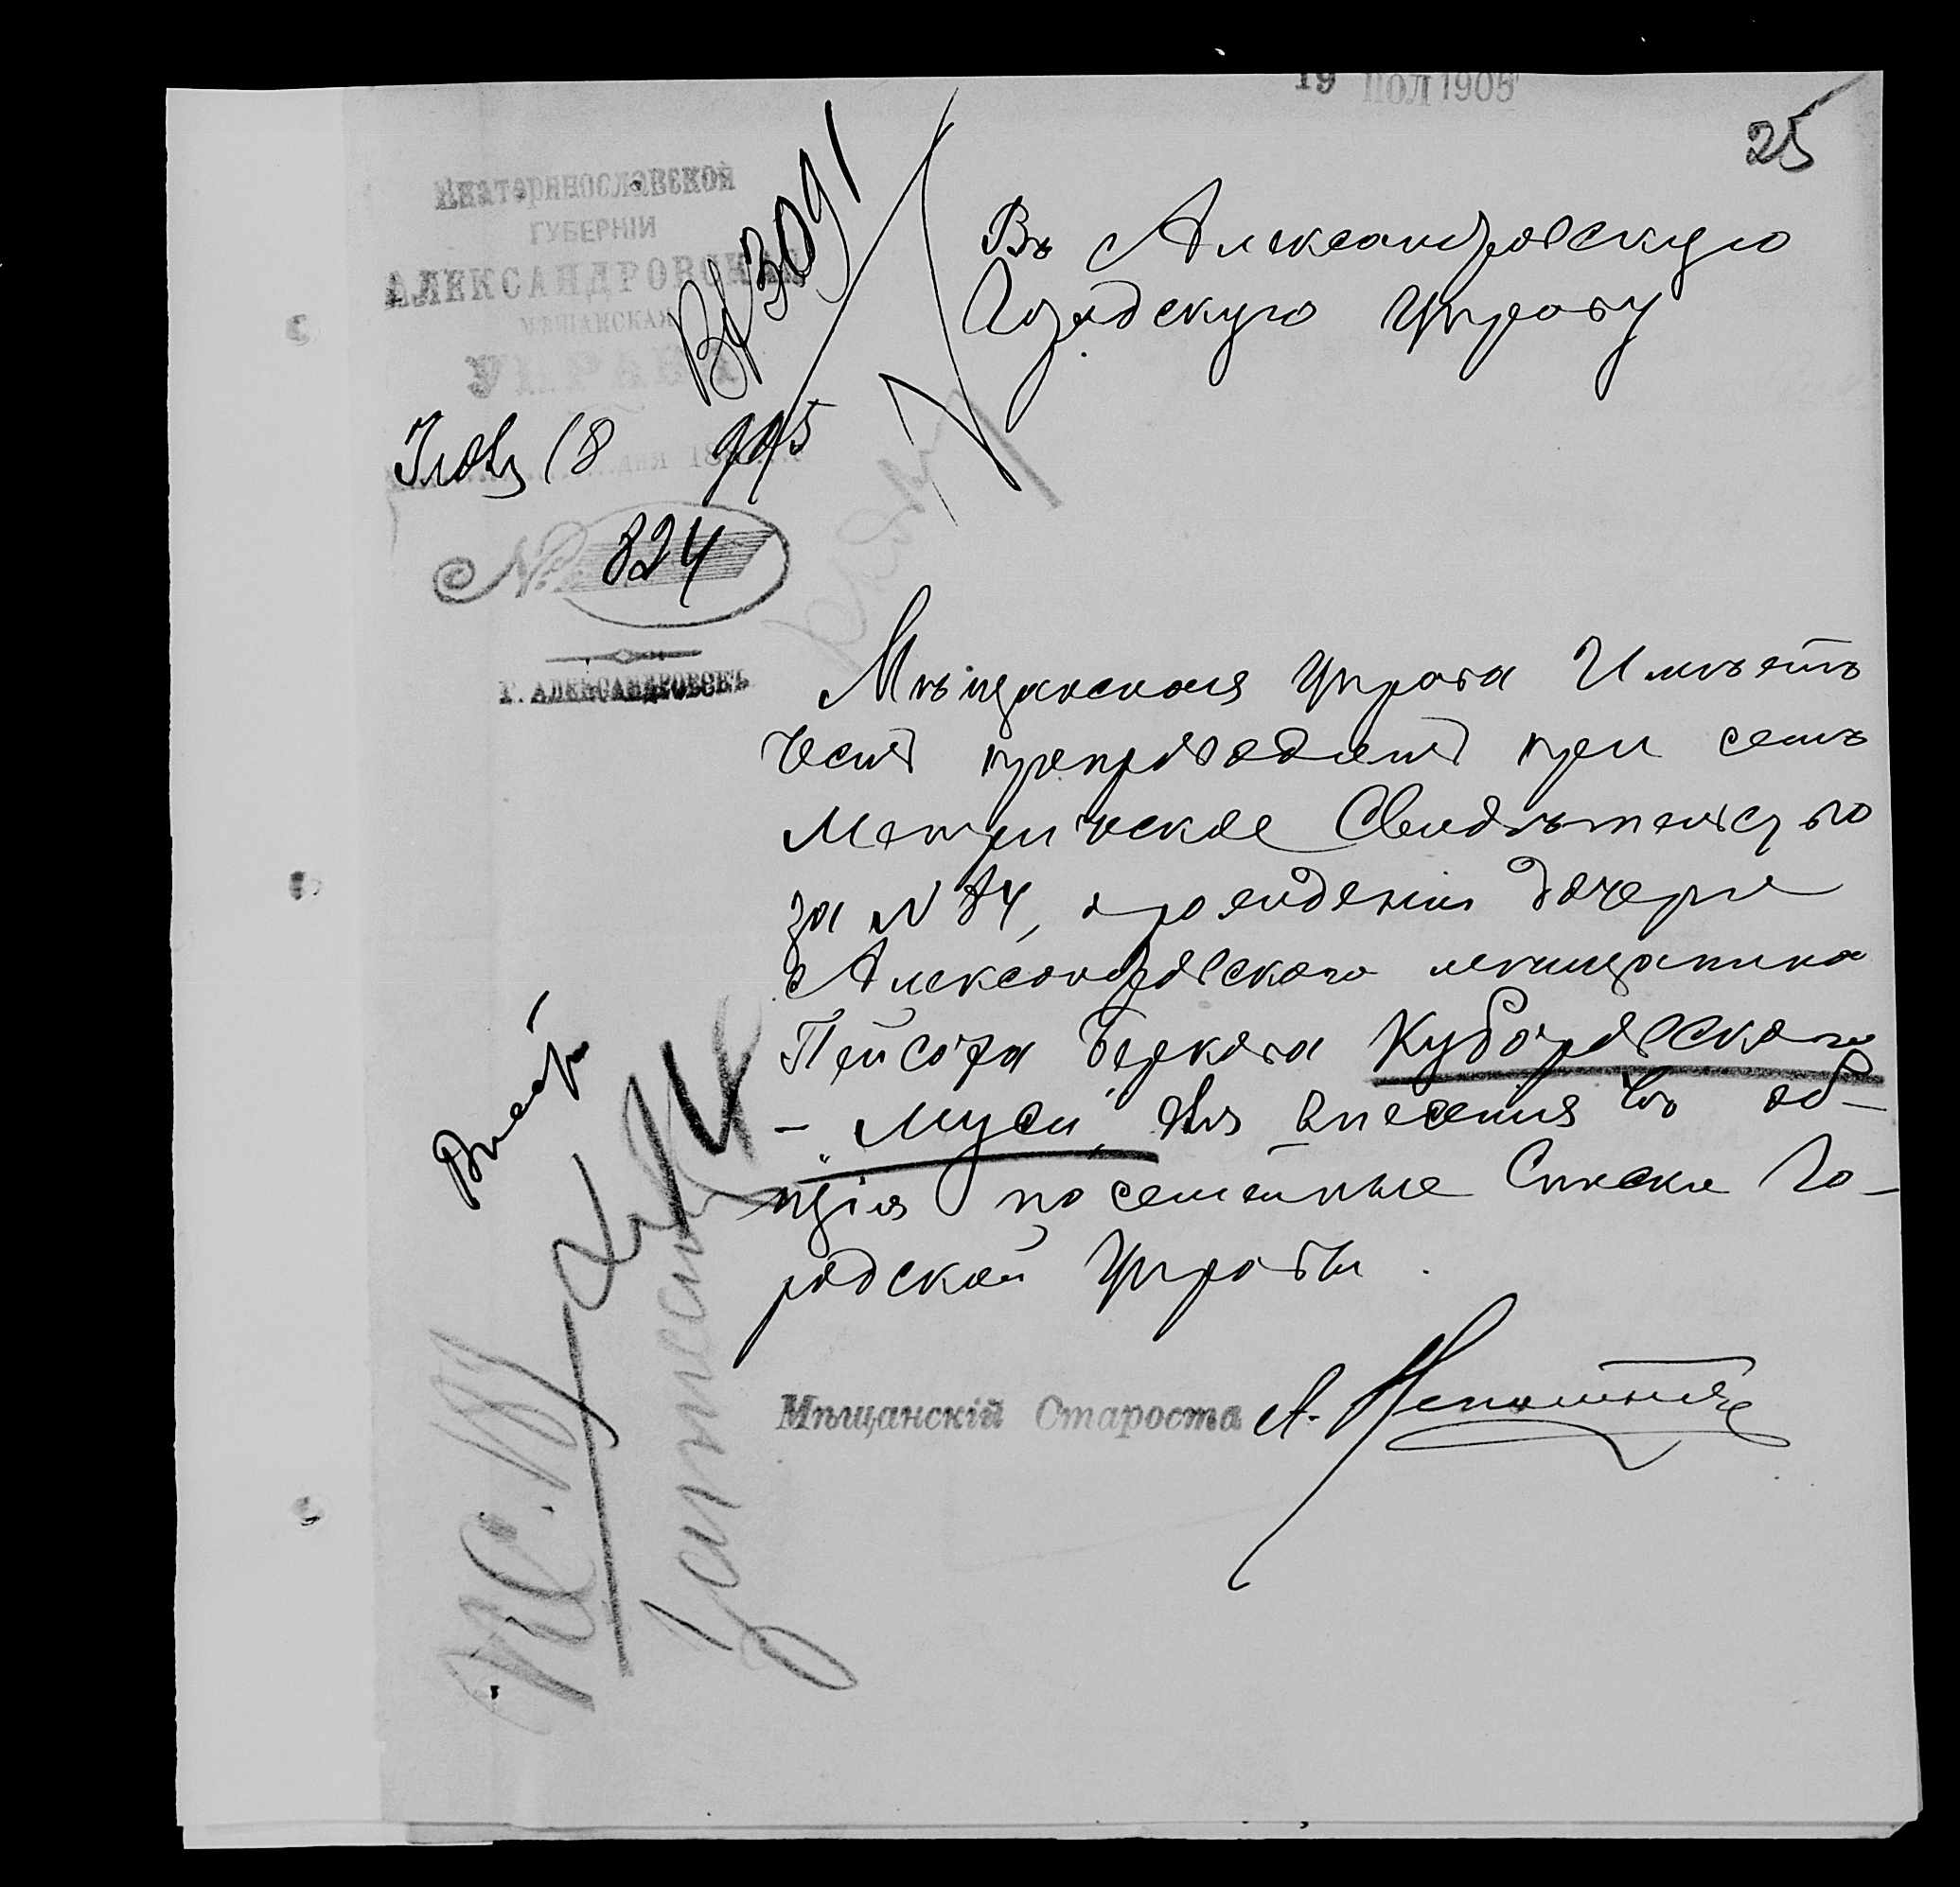 19 ІЮЛ 1905
25
Екатеринославской
ГУБЕРНІИ
АЛЕКСАНДРОВСКАЯ
МѢЩАНСКАЯ
УПРАВА
Вх 3091
Іюля 18 905
дня 18
№ 824
Г. АЛЕКСАНДРОВСКЪ
Въ Александровскую
Городскую Управу
Мѣщанская Управа Имѣетъ
честь препроводить при семъ
Метрическое Свидѣтельство
за N 84, о рожденіи дочери
Александровскаго мѣщанина
Пейсаха Беркова Кубаровскаго
- „Муси" для внесенія въ об-
щія посемейные Списки Го-
родской Управы.
Мѣщанскій Староста А.